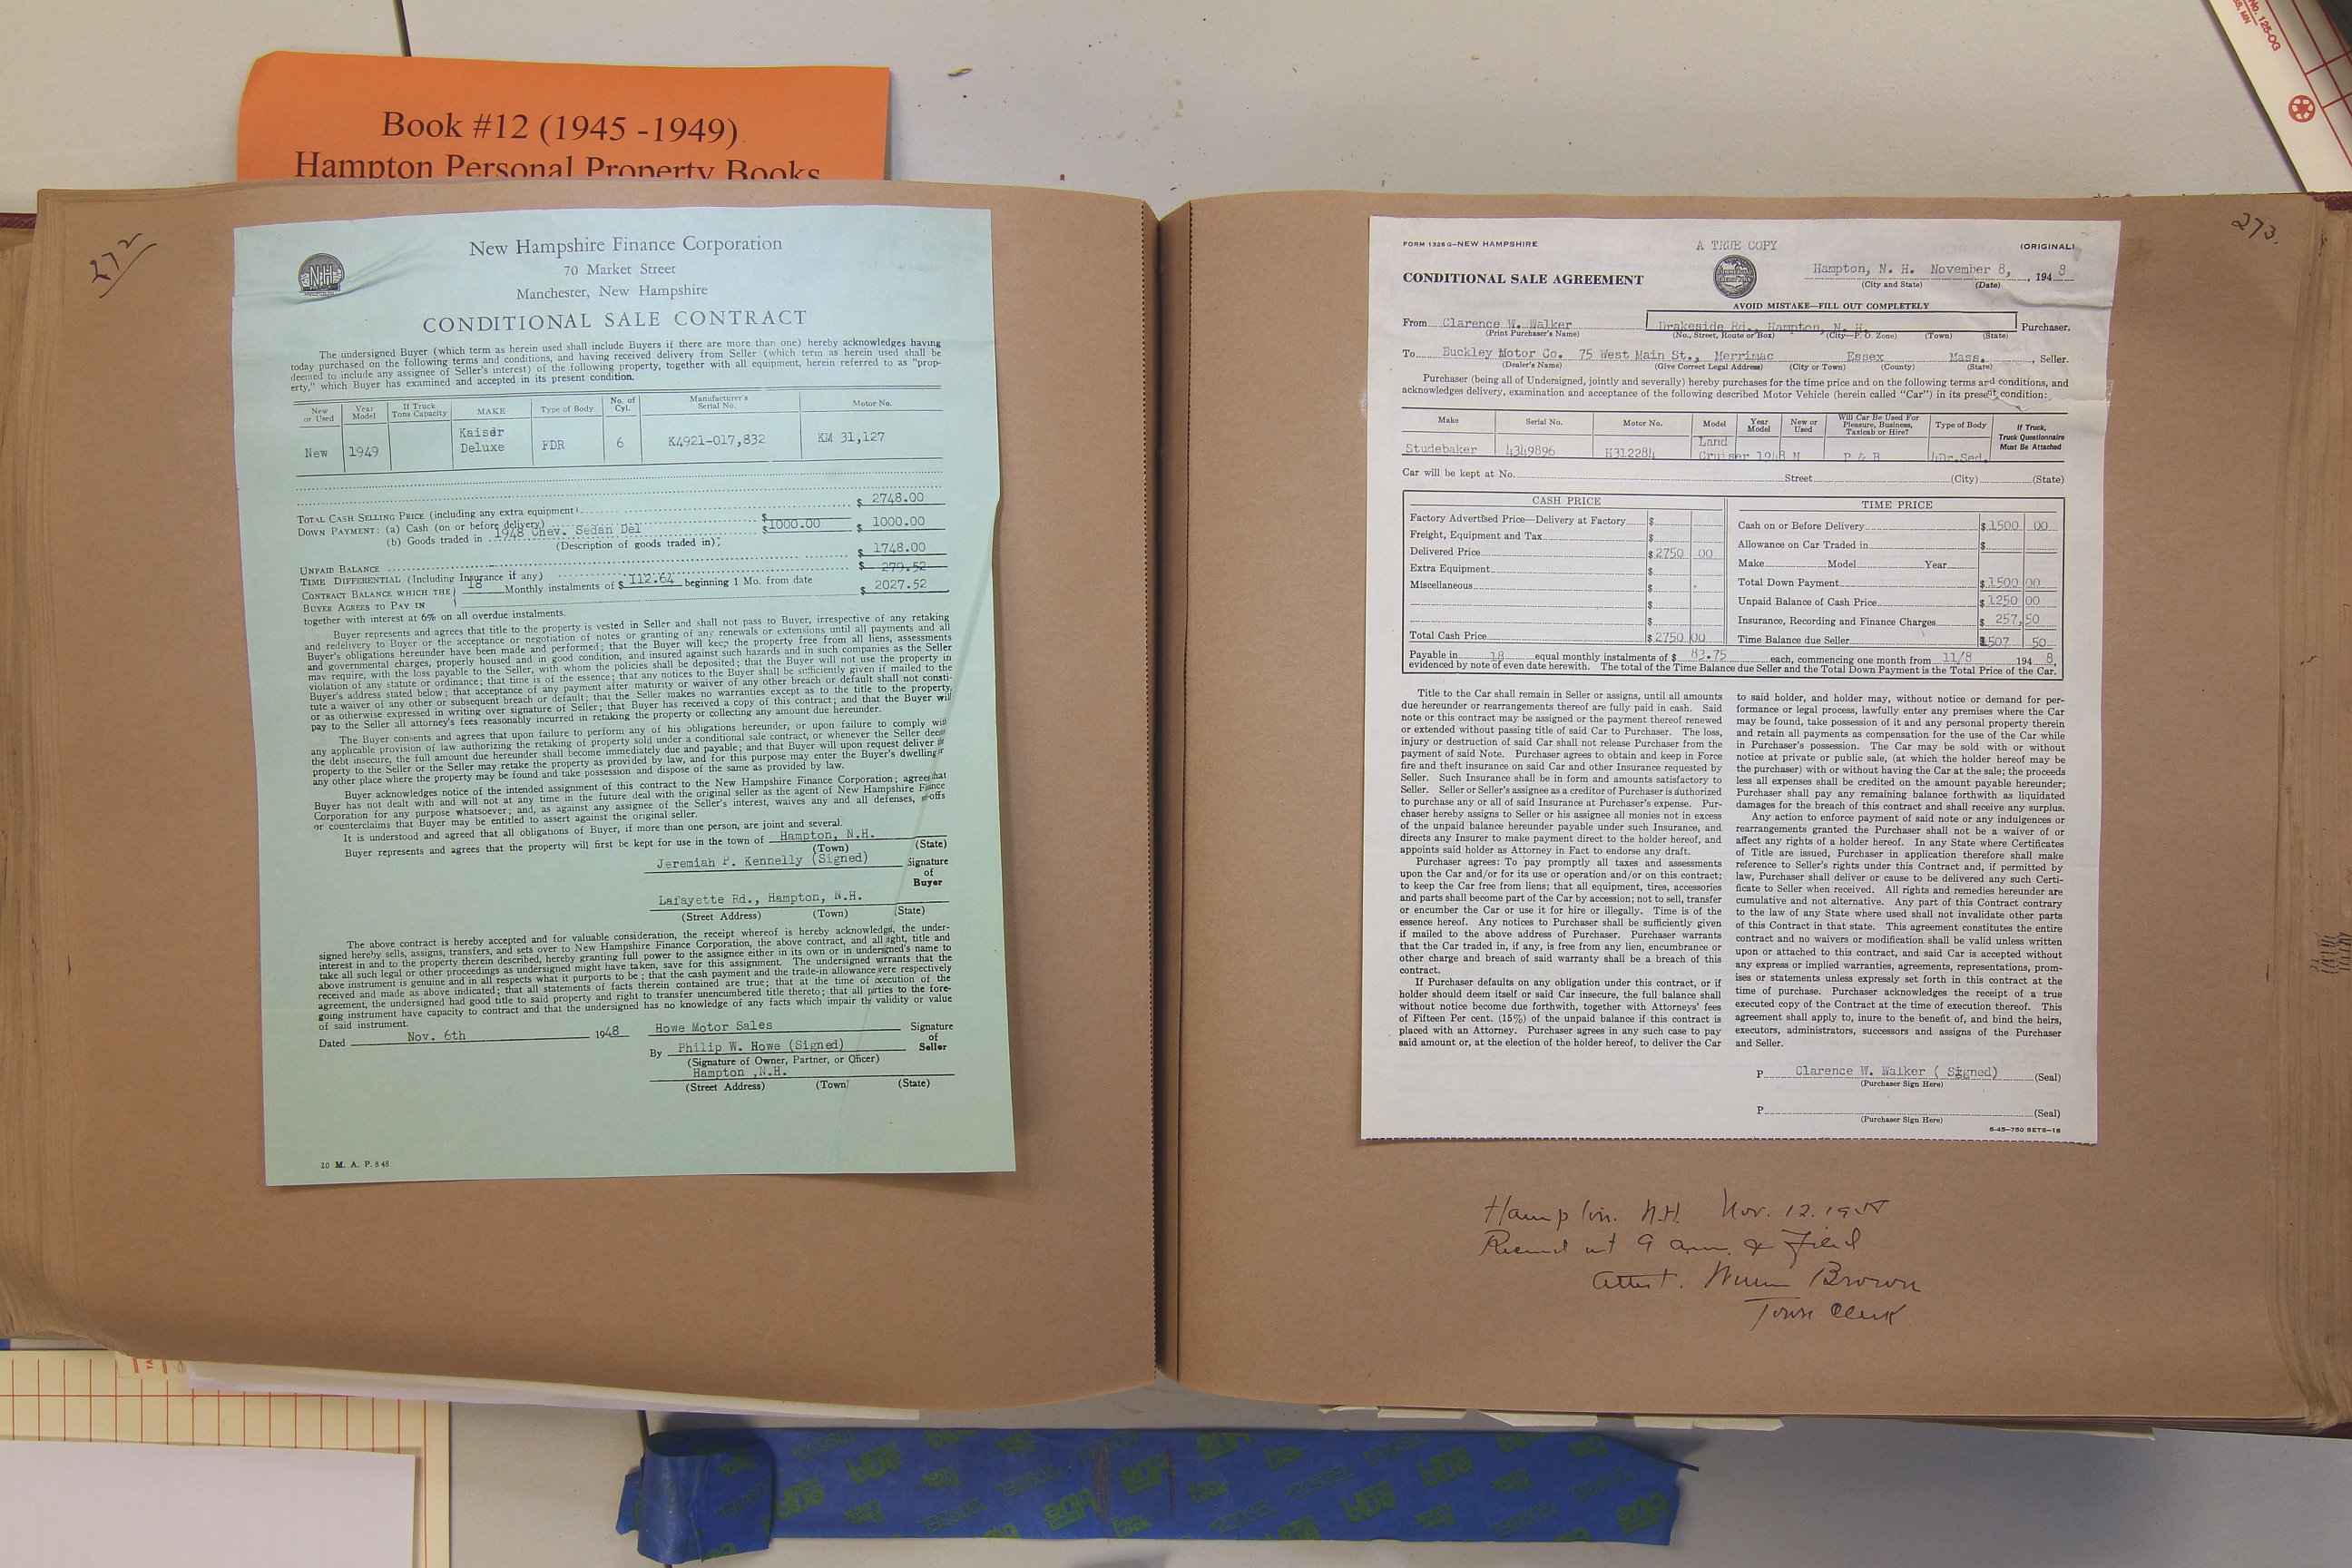 Book #12 (1945 -1949)
Hampton Personal Property Books
272
New Hampshire Finance Corporation
70 Market Street
Manchester, New Hampshire
CONDITIONAL SALE CONTRACT
The undersigned Buyer (which term as herein used shall include Buyers if there are more than one) hereby acknowledges having
today purchased on the following terms and conditions, and having received delivery from Seller (which term as herein used shall be
deemed to include any assignee of Seller's interest) of the following property, together with all equipment, herein referred to as "prop-
erty," which Buyer has examined and accepted in its present condition.
New or Used Year Model If Truck Tons Capacity MAKE Type of Body No. of Cyl. Manufacturer's Serial No. Motor No.
New 1949 Kaiser Deluxe FDR 6 K4921-017,832 KM 31,127
TOTAL CASH SELLING PRICE (including any extra equipment) $ 2748.00
DOWN PAYMENT: (a) Cash (on or before delivery) $
(b) Goods traded in 1948 Chev. Sedan Del $1000.00 $ 1000.00
(Description of goods traded in)
UNPAID BALANCE $ 1748.00
TIME DIFFERENTIAL (Including Insurance if any) $ 279.52
CONTRACT BALANCE WHICH THE BUYER AGREES TO PAY IN 18 Monthly instalments of $ 112.64 beginning 1 Mo. from date $ 2027.52
together with interest at 6% on all overdue instalments.
Buyer represents and agrees that title to the property is vested in Seller and shall not pass to Buyer, irrespective of any retaking
and redelivery to Buyer or the acceptance or negotiation of notes or granting of any renewals or extensions until all payments and all
Buyer's obligations hereunder have been made and performed; that the Buyer will keep the property free from all liens, assessments
and governmental charges, properly housed and in good condition, and insured against such hazards and in such companies as the Seller
may require, with the loss payable to the Seller, with whom the policies shall be deposited; that the Buyer will not use the property in
violation of any statute or ordinance; that time is of the essence; that any notices to the Buyer shall be sufficiently given if mailed to the
Buyer's address stated below; that acceptance of any payment after maturity or waiver of any other breach or default shall not consti-
tute a waiver of any other or subsequent breach or default; that the Seller makes no warranties except as to the title to the property,
or as otherwise expressed in writing over signature of Seller; that Buyer has received a copy of this contract; and that the Buyer will
pay to the Seller all attorney's fees reasonably incurred in retaking the property or collecting any amount due hereunder.
The Buyer consents and agrees that upon failure to perform any of his obligations hereunder, or upon failure to comply with
any applicable provision of law authorizing the retaking of property sold under a conditional sale contract, or whenever the Seller deems
the debt insecure, the full amount due hereunder shall become immediately due and payable; and that Buyer will upon request deliver the
property to the Seller or the Seller may retake the property as provided by law, and for this purpose may enter the Buyer's dwelling or
any other place where the property may be found and take possession and dispose of the same as provided by law.
Buyer acknowledges notice of the intended assignment of this contract to the New Hampshire Finance Corporation; agrees that
Buyer has not dealt with and will not at any time in the future deal with the original seller as the agent of New Hampshire Finance
Corporation for any purpose whatsoever; and, as against any assignee of the Seller's interest, waives any and all defenses, offs
or counterclaims that Buyer may be entitled to assert against the original seller.
It is understood and agreed that all obligations of Buyer, if more than one person, are joint and several.
Buyer represents and agrees that the property will first be kept for use in the town of Hampton, N.H.
(Town) (State)
Jeremiah P. Kennelly (Signed) Signature of Buyer
Lafayette Rd., Hampton, N.H.
(Street Address) (Town) (State)
The above contract is hereby accepted and for valuable consideration, the receipt whereof is hereby acknowledged, the under-
signed hereby sells, assigns, transfers, and sets over to New Hampshire Finance Corporation, the above contract, and all right, title and
interest in and to the property therein described, hereby granting full power to the assignee either in its own or in undersigned's name to
take all such legal or other proceedings as undersigned might have taken, save for this assignment. The undersigned warrants that the
above instrument is genuine and in all respects what it purports to be; that the cash payment and the trade-in allowance were respectively
received and made as above indicated; that all statements of facts therein contained are true; that at the time of execution of the
agreement, the undersigned had good title to said property and right to transfer unencumbered title thereto; that all parties to the fore-
going instrument have capacity to contract and that the undersigned has no knowledge of any facts which impair the validity or value
of said instrument.
Dated Nov. 6th 1948 Howe Motor Sales Signature of Seller
By Philip W. Howe (Signed)
(Signature of Owner, Partner, or Officer)
Hampton ,N.H.
(Street Address) (Town) (State)
20 M. A. P. 8 48
273.
FORM 1326 G—NEW HAMPSHIRE A TRUE COPY (ORIGINAL)
CONDITIONAL SALE AGREEMENT Hampton, N. H. November 8, , 194 8
(City and State) (Date)
AVOID MISTAKE—FILL OUT COMPLETELY
From Clarence W. Walker Drakeside Rd., Hampton, N. H. Purchaser.
(Print Purchaser's Name) (No., Street, Route or Box) (City—P. O. Zone) (Town) (State)
To Buckley Motor Co. 75 West Main St., Merrimac Essex Mass. , Seller.
(Dealer's Name) (Give Correct Legal Address) (City or Town) (County) (State)
Purchaser (being all of Undersigned, jointly and severally) hereby purchases for the time price and on the following terms and conditions, and
acknowledges delivery, examination and acceptance of the following described Motor Vehicle (herein called "Car") in its present condition:
Make Serial No. Motor No. Model Year Model New or Used Will Car Be Used For Pleasure, Business, Taxicab or Hire? Type of Body If Truck, Truck Questionnaire Must Be Attached
Studebaker 4349896 H312284 Land Cruiser 1948 N P & B 4Dr.Sed.
Car will be kept at No. Street (City) (State)
CASH PRICE
Factory Advertised Price—Delivery at Factory $
Freight, Equipment and Tax $
Delivered Price $ 2750 00
Extra Equipment $
Miscellaneous $
$
$
Total Cash Price $ 2750 00
TIME PRICE
Cash on or Before Delivery $ 1500 00
Allowance on Car Traded in $
Make Model Year
Total Down Payment $ 1500 00
Unpaid Balance of Cash Price $ 1250 00
Insurance, Recording and Finance Charges $ 257.50
Time Balance due Seller 1507 50
Payable in 18 equal monthly instalments of $ 83.75 each, commencing one month from 11/8 194 8,
evidenced by note of even date herewith. The total of the Time Balance due Seller and the Total Down Payment is the Total Price of the Car.
Title to the Car shall remain in Seller or assigns, until all amounts
due hereunder or rearrangements thereof are fully paid in cash. Said
note or this contract may be assigned or the payment thereof renewed
or extended without passing title of said Car to Purchaser. The loss,
injury or destruction of said Car shall not release Purchaser from the
payment of said Note. Purchaser agrees to obtain and keep in Force
fire and theft insurance on said Car and other Insurance requested by
Seller. Such Insurance shall be in form and amounts satisfactory to
Seller. Seller or Seller's assignee as a creditor of Purchaser is authorized
to purchase any or all of said Insurance at Purchaser's expense. Pur-
chaser hereby assigns to Seller or his assignee all monies not in excess
of the unpaid balance hereunder payable under such Insurance, and
directs any Insurer to make payment direct to the holder hereof, and
appoints said holder as Attorney in Fact to endorse any draft.
Purchaser agrees: To pay promptly all taxes and assessments
upon the Car and/or for its use or operation and/or on this contract;
to keep the Car free from liens; that all equipment, tires, accessories
and parts shall become part of the Car by accession; not to sell, transfer
or encumber the Car or use it for hire or illegally. Time is of the
essence hereof. Any notices to Purchaser shall be sufficiently given
if mailed to the above address of Purchaser. Purchaser warrants
that the Car traded in, if any, is free from any lien, encumbrance or
other charge and breach of said warranty shall be a breach of this
contract.
If Purchaser defaults on any obligation under this contract, or if
holder should deem itself or said Car insecure, the full balance shall
without notice become due forthwith, together with Attorneys' fees
of Fifteen Per cent. (15%) of the unpaid balance if this contract is
placed with an Attorney. Purchaser agrees in any such case to pay
said amount or, at the election of the holder hereof, to deliver the Car
to said holder, and holder may, without notice or demand for per-
formance or legal process, lawfully enter any premises where the Car
may be found, take possession of it and any personal property therein
and retain all payments as compensation for the use of the Car while
in Purchaser's possession. The Car may be sold with or without
notice at private or public sale, (at which the holder hereof may be
the purchaser) with or without having the Car at the sale; the proceeds
less all expenses shall be credited on the amount payable hereunder;
Purchaser shall pay any remaining balance forthwith as liquidated
damages for the breach of this contract and shall receive any surplus.
Any action to enforce payment of said note or any indulgences or
rearrangements granted the Purchaser shall not be a waiver of or
affect any rights of a holder hereof. In any State where Certificates
of Title are issued, Purchaser in application therefore shall make
reference to Seller's rights under this Contract and, if permitted by
law, Purchaser shall deliver or cause to be delivered any such Certi-
ficate to Seller when received. All rights and remedies hereunder are
cumulative and not alternative. Any part of this Contract contrary
to the law of any State where used shall not invalidate other parts
of this Contract in that state. This agreement constitutes the entire
contract and no waivers or modification shall be valid unless written
upon or attached to this contract, and said Car is accepted without
any express or implied warranties, agreements, representations, prom-
ises or statements unless expressly set forth in this contract at the
time of purchase. Purchaser acknowledges the receipt of a true
executed copy of the Contract at the time of execution thereof. This
agreement shall apply to, inure to the benefit of, and bind the heirs,
executors, administrators, successors and assigns of the Purchaser
and Seller.
P Clarence W. Walker ( Signed) (Seal)
(Purchaser Sign Here)
P (Seal)
(Purchaser Sign Here)
6-45—750 SETS—16
Hampton. N.H. Nov. 12. 1948
Received at 9 a.m. & Filed
Attest. Brown
Town Clerk